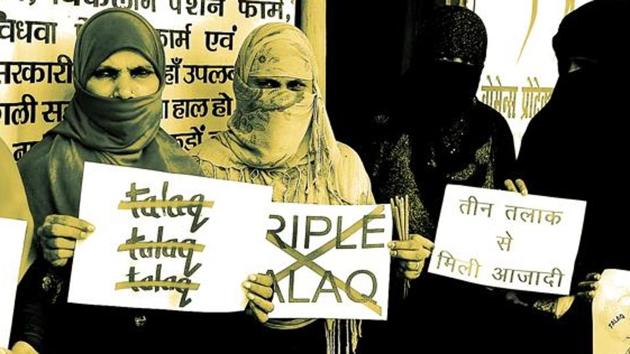 पेंशन फार्म,
विधवा
फार्म एवं
सरकारी
यहाँ
हाल हो
talaq
talaq
talaq
RIPLE
ALAQ
तीन तलाक
से
मिली आजादी
TALAQ